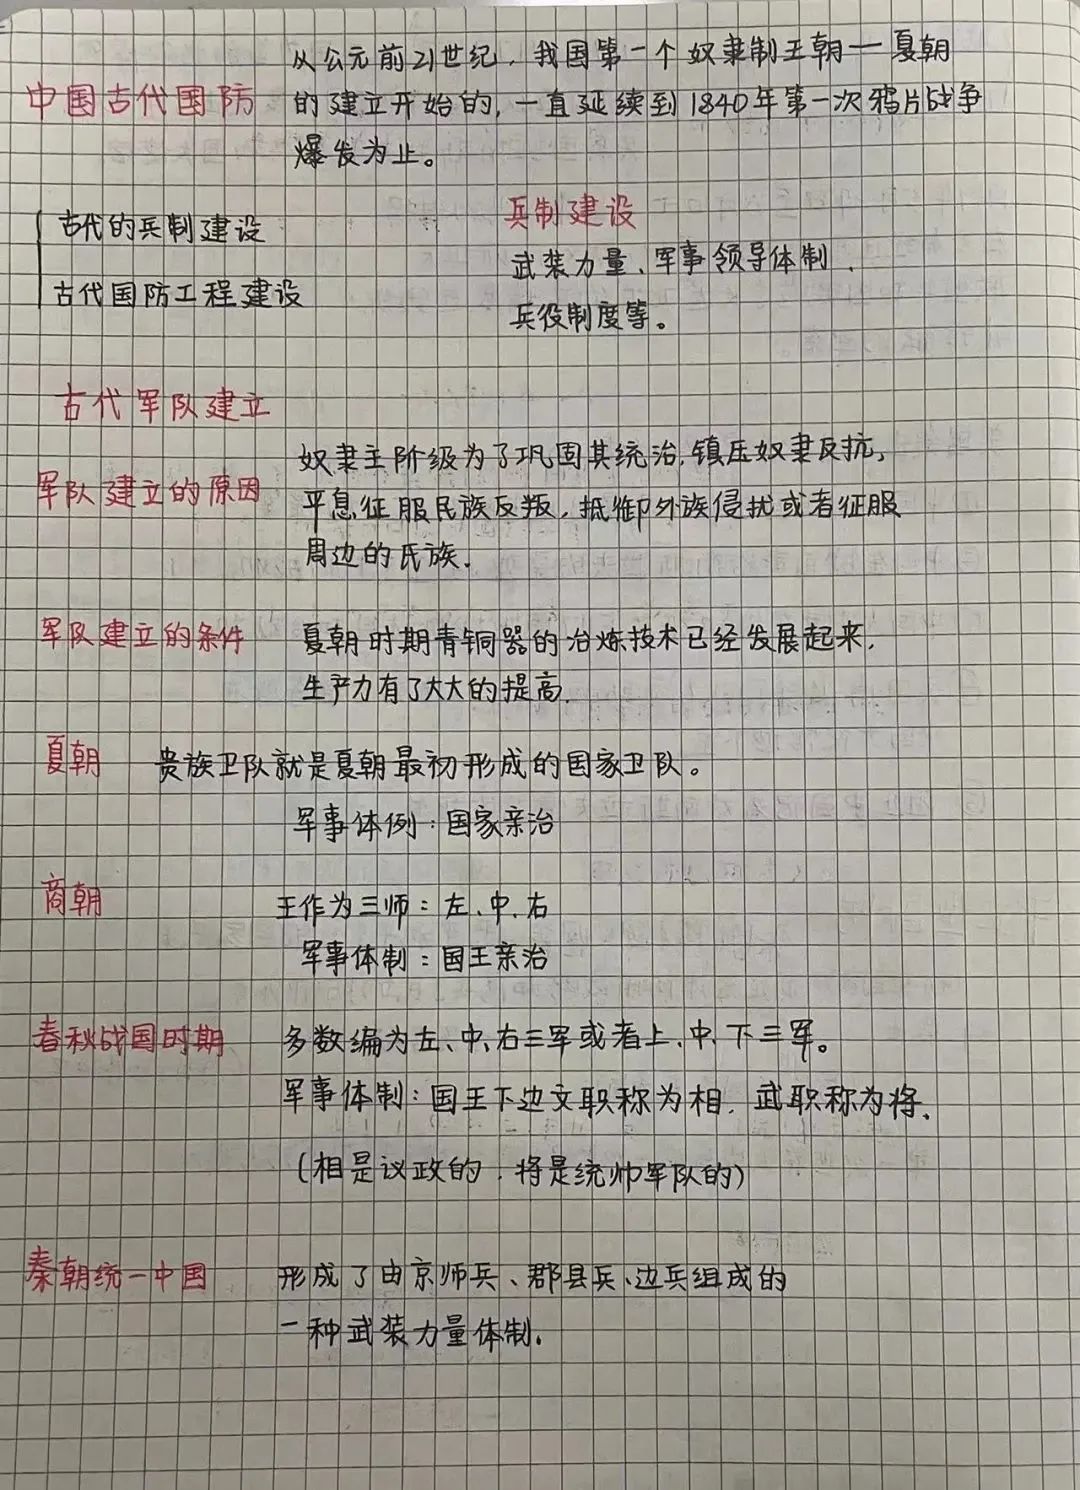 从公元前21世纪，我国第一个奴隶制王朝一夏朝
中国古代国防
的建立开始的，一直延续到1840年第一次鸦片战争
爆发为止。
古代的兵制建设
古代国防工程建设
兵制建设
武装力量、军事领导体制、
兵役制度等。
古代军队建立
军队建立的原因
奴隶主阶级为了巩固其统治，镇压奴隶反抗，
平息征服民族反叛，抵御外族侵扰或者征服
周边的氏族.
军队建立的条件
夏朝时期青铜器的冶炼技术已经发展起来，
生产力有了大大的提高.
夏朝 贵族卫队就是夏朝最初形成的国家卫队。
军事体例：国家亲治
商朝 王作为三师：左、中、右
军事体制：国王亲治
春秋战国时期 多数编为左、中、右三军或者上、中、下三军。
军事体制：国王下边文职称为相，武职称为将、
（相是议政的，将是统帅军队的）
秦朝统一中国 形成了由京师兵、郡县兵、边兵组成的
一种武装力量体制.